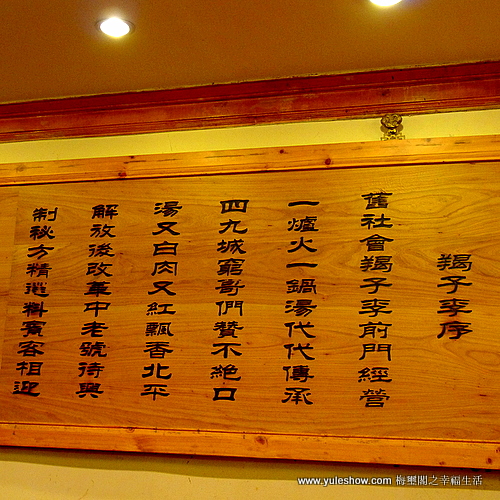 羯子李序
舊社會羯子李前門經營
一爐火一鍋湯代代傳承
四九城窮哥們贊不絕口
湯又白肉又紅飄香北平
解放後改革中老號待興
制秘方精選料賓客相迎
www.yuleshow.com 梅璽閣之幸福生活